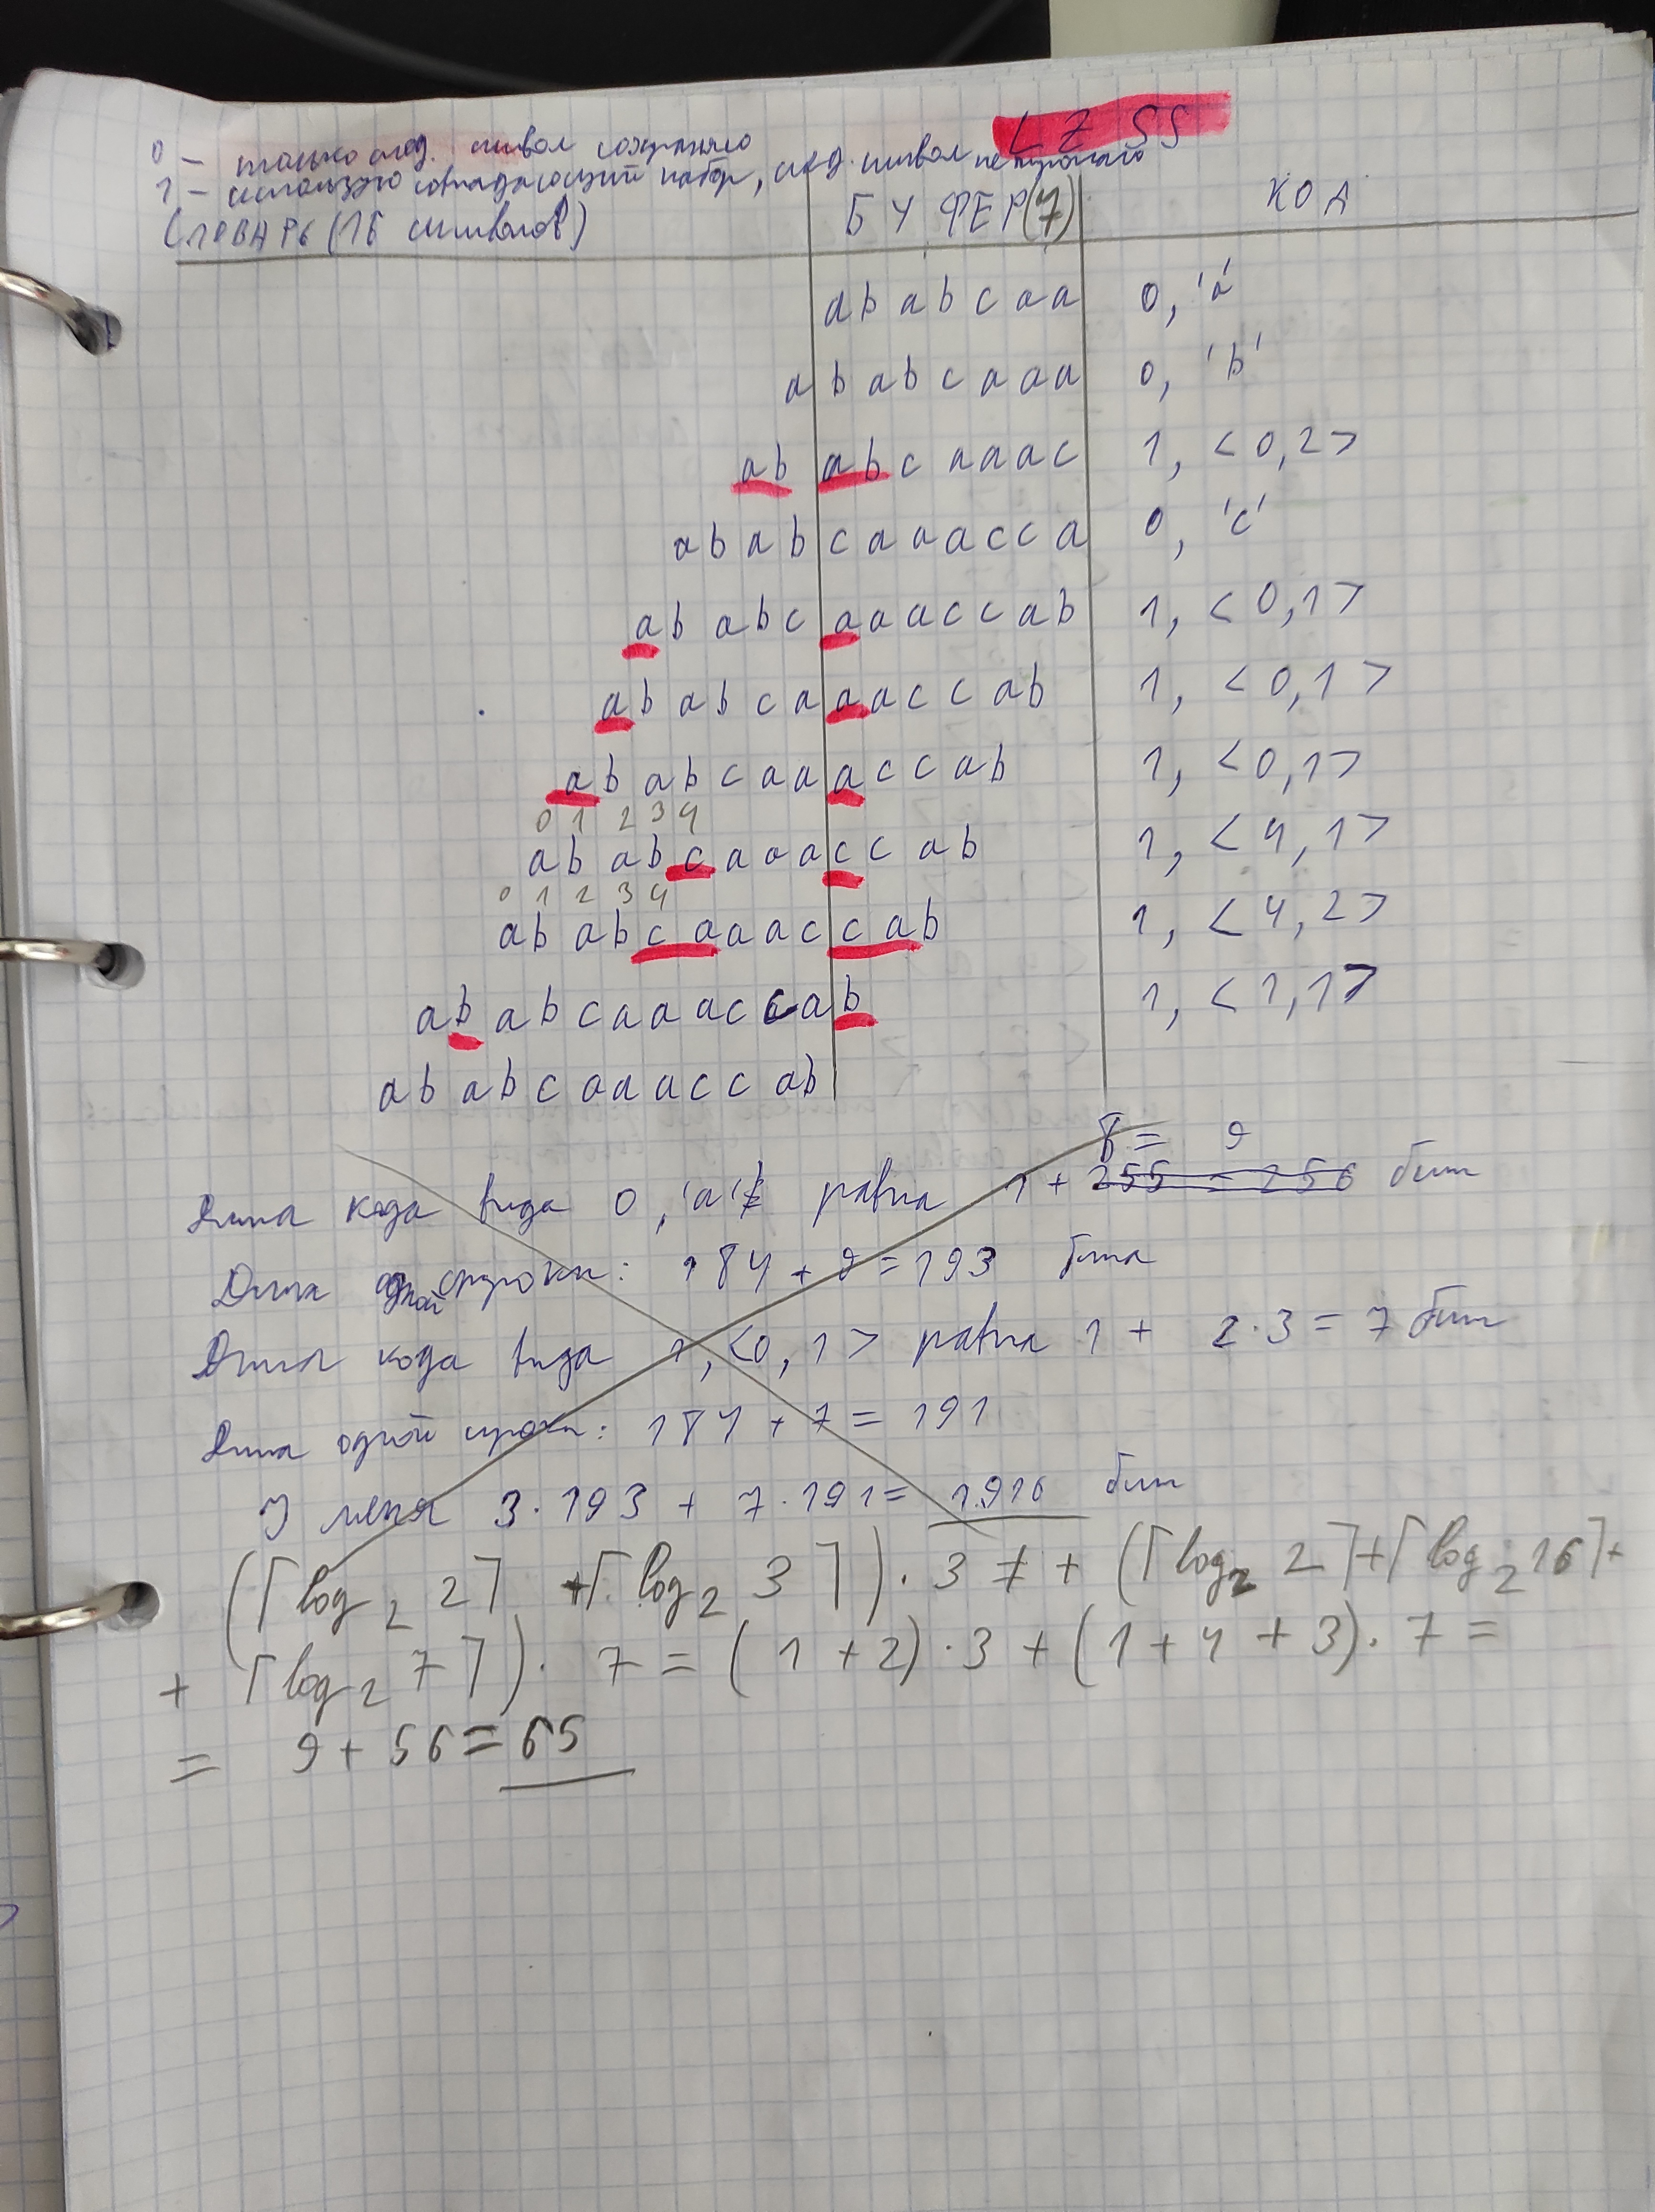 LZSS
0 – только след. символ сохраняю
1 – использую совпадающий набор, след. символ не трогаю
СЛОВАРЬ (16 символов) БУФЕР(7) КОД
ababcaa 0, 'a'
a babcaaa 0, 'b'
ab abcaaac 1, <0,2>
abab caaacca 0, 'c'
ababc aaaccab 1, <0,1>
ababca aaccab 1, <0,1>
ababcaa accab 1, <0,1>
0 1 2 3 4
ababcaaa ccab 1, <4,1>
0 1 2 3 4
ababcaaac cab 1, <4,2>
ababcaaacca b 1, <1,1>
ababcaaaccab
8 = 9
Длина кода вида 0, 'a' равна 1 + 255 = 256 бит
Длина одной строки: 184 + 9 = 193 бита
Длина кода вида 1, <0, 1> равна 1 + 2·3 = 7 бит
Длина одной строки: 184 + 7 = 191
У меня 3·193 + 7·191 = 1916 бит
(⌈log₂ 2⌉ + ⌈log₂ 3⌉)·3 + (⌈log₂ 2⌉ + ⌈log₂ 16⌉ +
+ ⌈log₂ 7⌉)·7 = (1 + 2)·3 + (1 + 4 + 3)·7 =
= 9 + 56 = 65